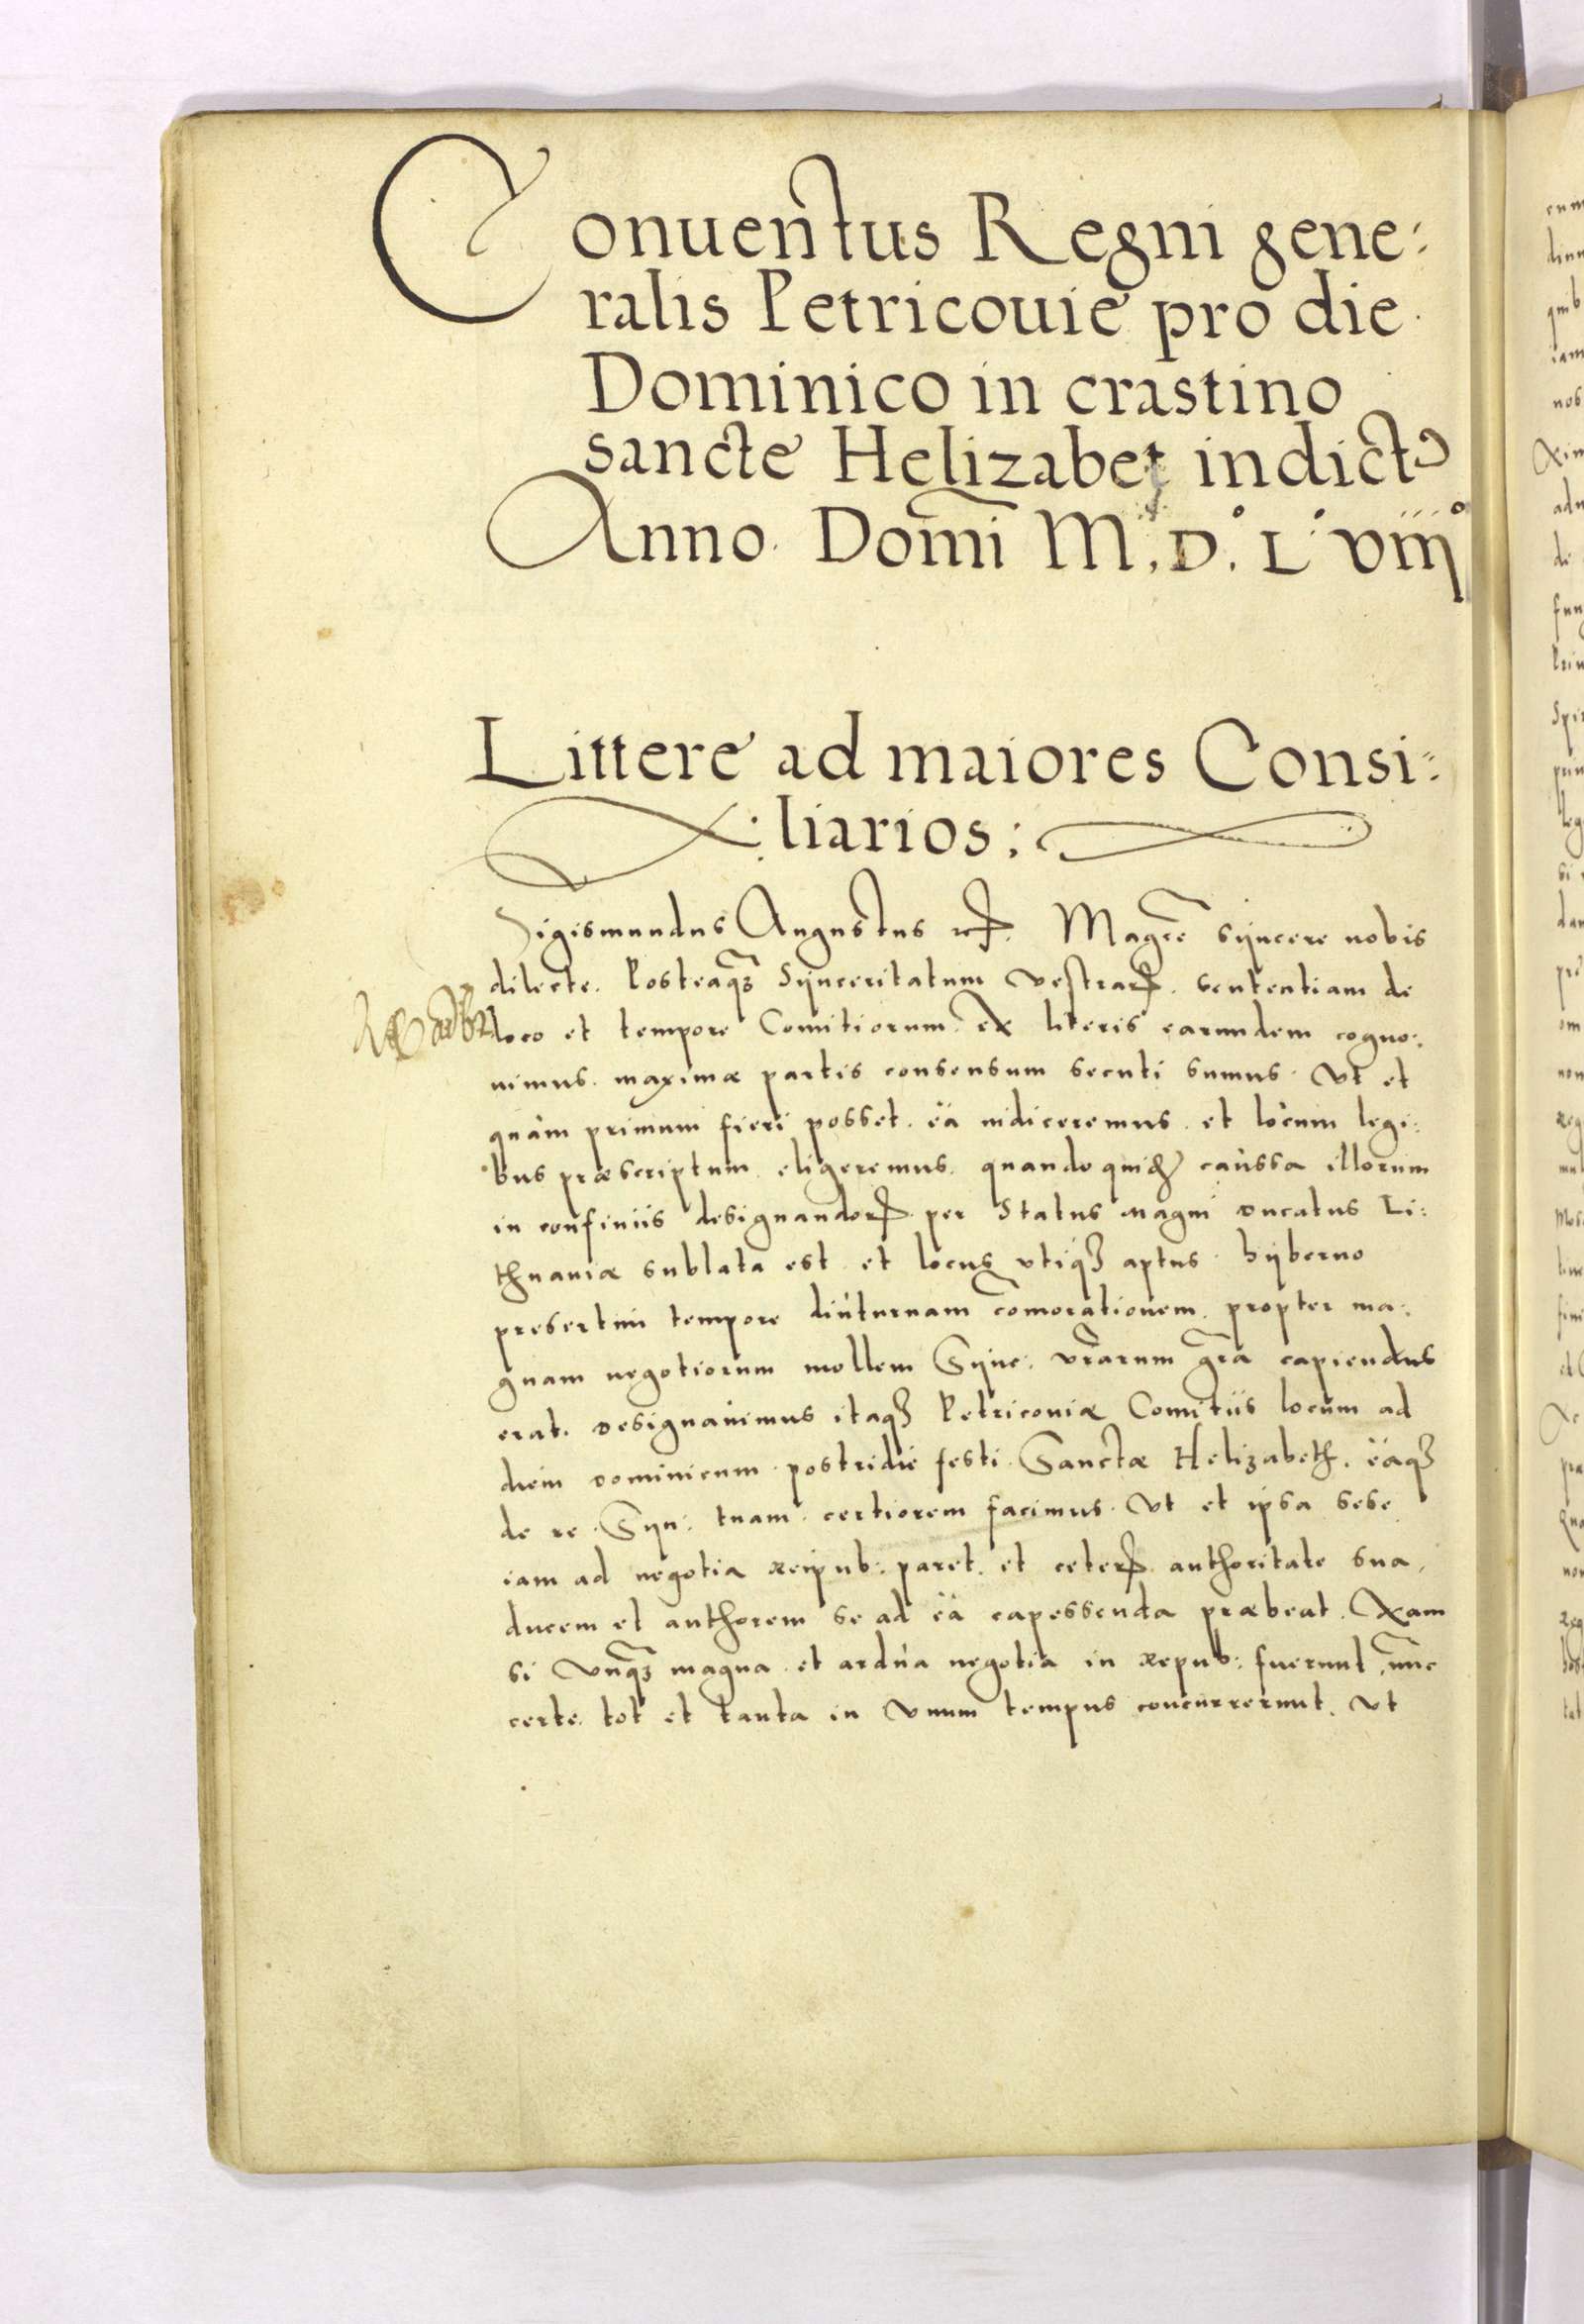 Conuentus Regni gene:
ralis Petricouie pro die
Dominico in crastino
sancte Helizabet indictꝰ
Anno Domī M.D.L viijº
Littere ad maiores Consi:
:liarios:
Sigismundus Augustus rꝝ. Magcē sÿncere nobis
dilecte. Posteaqꝫ Sÿnceritatum vestraꝝ. sententiam de
loco et tempore Comitiorum ex literis earundem cogno:
uimus. maximæ partis consensum secuti sumus. Vt et
quàm primum fieri posset. ëa indiceremus. et locum legi:
bus præscriptum eligeremus. quando quidē caussa illorum
in confiniis designandoꝝ per Status magni ducatus Li:
thuaniæ sublata est et locus vtiqꝫ aptus. hÿberno
presertim tempore diuturnam com̄orationem. propter ma:
gnam negotiorum mollem Sÿnc: vr̄arum gr̄a capiendus
erat. designauimus itaqꝫ Petricouiæ Comitiis locum ad
diem dominicum postridie festi Sanctæ Helizabeth. ëaqꝫ
de re Sÿn: tuam certiorem facimus. Vt et ipsa sese
iam ad negotia reipub: paret. et ceteꝝ authoritate sua,
ducem et authorem se ad ëa capessenda præbeat. Nam
si vnqꝫ magna et ardua negotia in repub: fuerunt nūc
certe. tot et tanta in vnum tempus concurrerunt. Vt